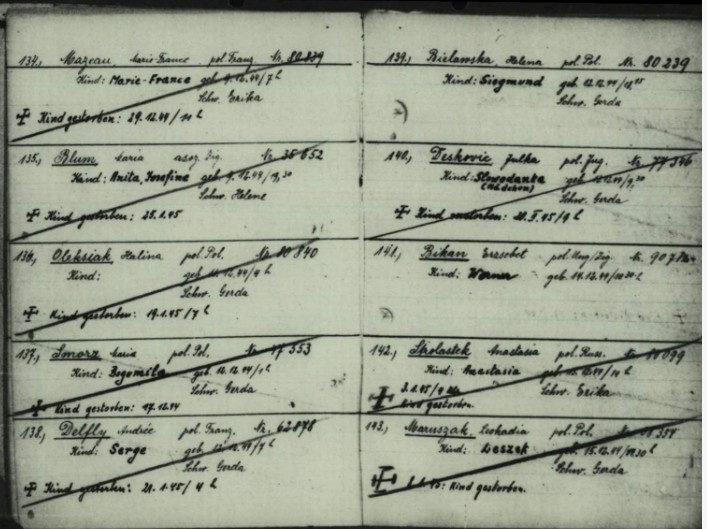 134, Mazeau, Marie France pol. Franz. Nr. 80 839
Kind: Marie-France geb. 9.12.44/7 h
Schw. Erika
Kind gestorben: 29.12.44/
135, Blum, Maria asoz. Zig. Nr. 35 652
Kind: Anita, Josefine geb. 9.12.44/
Schw. Helene
Kind gestorben: 25.1.45
136, Oleksiak, Halina pol. Pol. Nr. 80 840
Kind: geb.
Schw. Gerda
Kind gestorben: 19.1.45/7 h
137, Smorz Maria pol. Pol. Nr. 353
Kind: Bogomila geb. 12.12.44/
Schw. Gerda
Kind gestorben: 17.12.44
138, Delfly Andrée pol. Franz. Nr. 62 878
Kind: Serge geb. 12.12.44/7 h
Schw. Gerda
Kind gestorben: 21.1.45/
139, Bielawska, Helena pol. Pol. Nr. 80 239
Kind: Siegmund geb. 12.12.44/
Schw. Gerda
140, Deskovic Julka pol. Jug. Nr.
Kind: Slowodanka geb.
(Mädchen)
Schw. Gerda
Kind
141, Bikan Erzsebet pol. Ung/Zig Nr. 907
Kind: Werner geb. 14.12.44/
142, Skolastek Anastasia pol. Russ. Nr. 099
Kind: Anastasia geb.
2.1.45/ Schw. Erika
Kind gestorben.
143, Maruszak, Leokadia pol. Pol. Nr. 357
Kind: Leszek geb. 15.12.44/
Schw. Gerda
Kind gestorben.